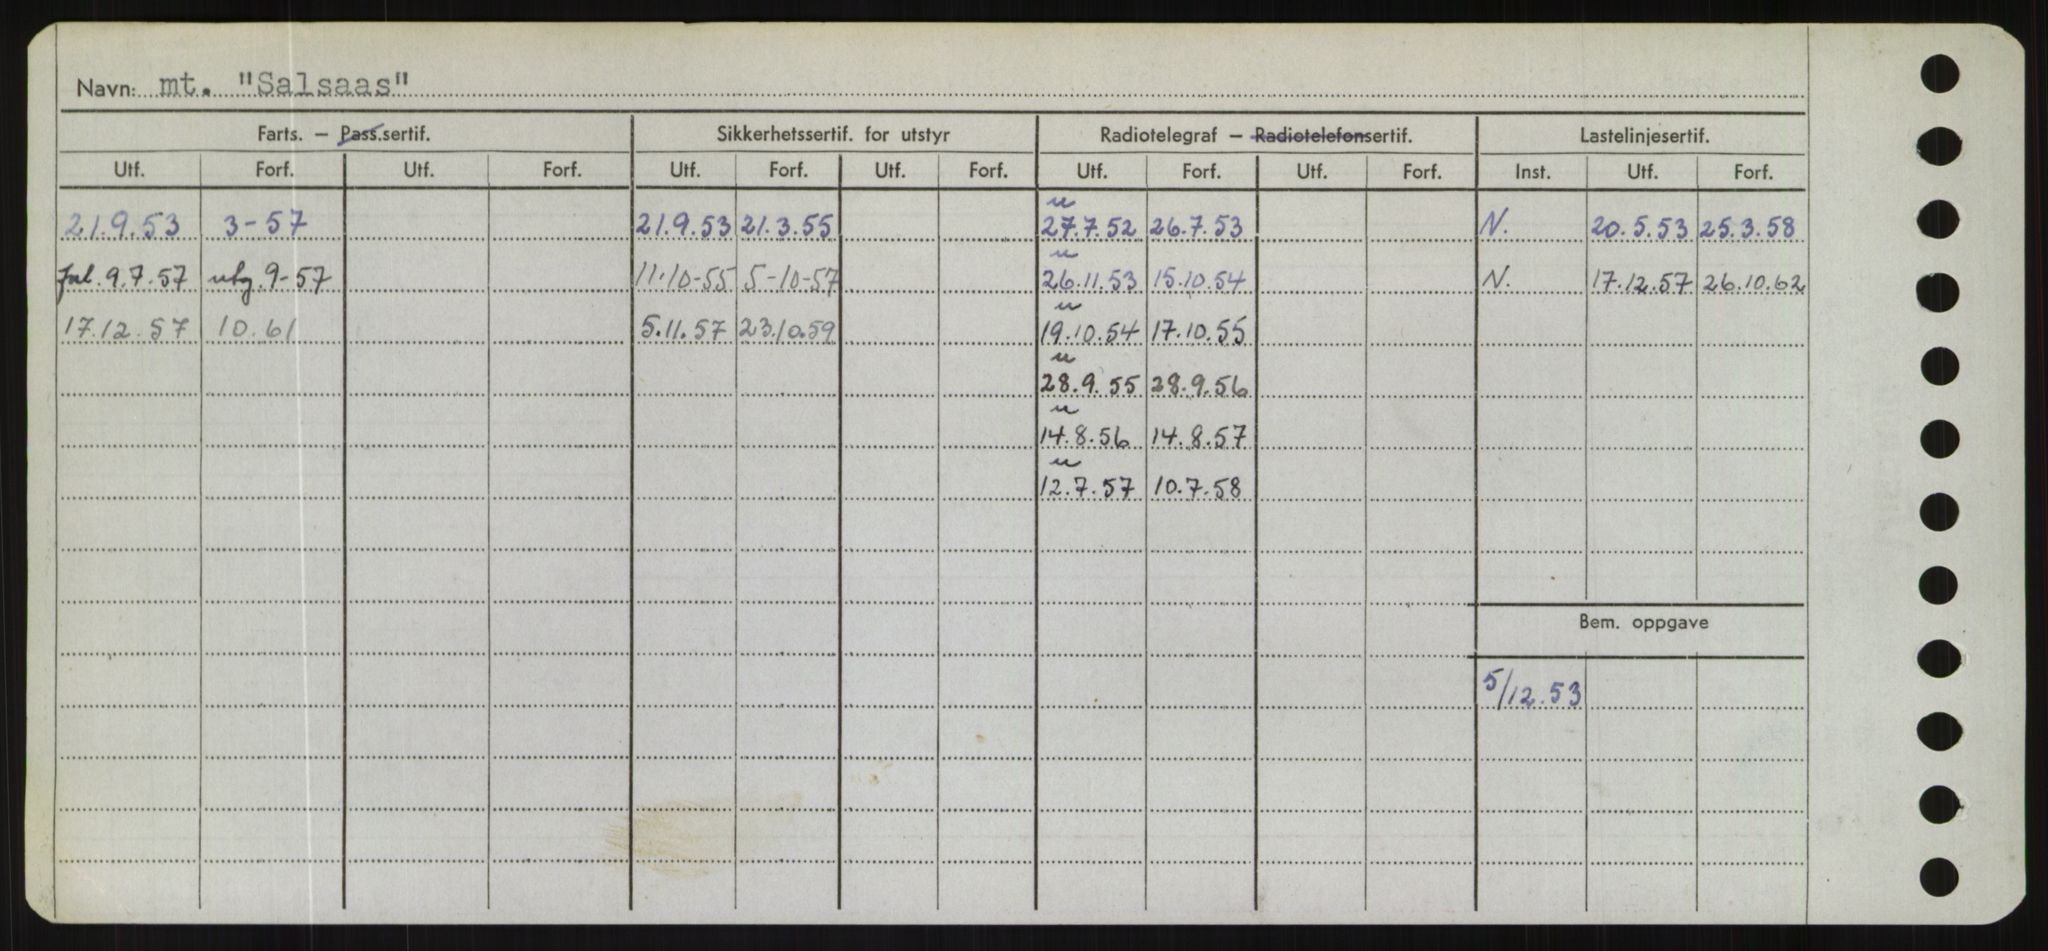 Navn: mt. "Salsaas"
Farts. — Pass.sertif. Sikkerhetssertif. for utstyr Radiotelegraf — Radiotelefonsertif. Lastelinjesertif.
Utf. Forf. Utf. Forf. Utf. Forf. Utf. Forf. Utf. Forf. Utf. Forf. Inst. Utf. Forf.
u
21.9.53 3-57 21.9.53 21.3.55 27.7.52 26.7.53 N. 20.5.53 25.3.58
u
9.7.57 9-57 11-10-55 5-10-57 26.11.53 15.10.54 N. 17.12.57 26.10.62
u
17.12.57 10.61 5.11.57 23.10.59 19.10.54 17.10.55
u
28.9.55 28.9.56
u
14.8.56 14.8.57
u
12.7.57 10.7.58
Bem. oppgave
5/12.53